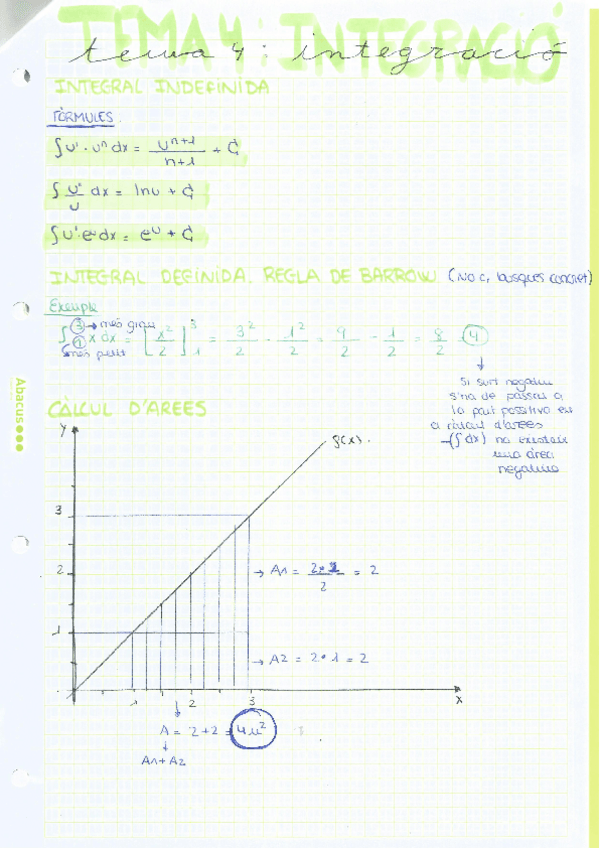 TEMA 4: INTEGRACIÓ
tema 4: integració
INTEGRAL INDEFINIDA
FÒRMULES
∫u'·uⁿ dx = uⁿ⁺¹/n+1 + C
∫u'/u dx = lnu + C
∫u'·eᵘ dx = eᵘ + C
INTEGRAL DEFINIDA. REGLA DE BARROW. (No c, busques concret)
Exemple
3 → més gran
∫₁³ x dx = [x²/2]₁³ = 3²/2 - 1²/2 = 9/2 - 1/2 = 8/2 = 4
més petit
Si surt negatiu
s'ha de passar a
la part possitiva en
a càlcul d'àrees
-(∫dx) no existeix
una àrea
negativa
CÀLCUL D'ÀREES
Y
f(x).
3
→ A1 = 2·2/2 = 2
2
1
→ A2 = 2·1 = 2
1 2 3
x
A = 2+2 = 4u²
A1+A2
Abacus